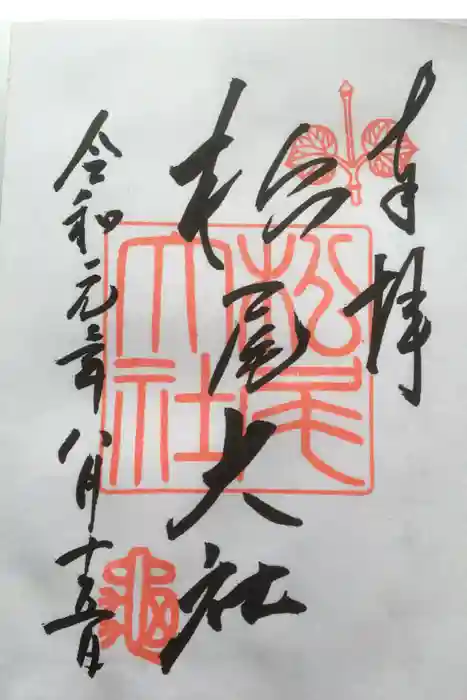 奉拝
松尾大社
松尾大社
令和元年八月十五日
亀